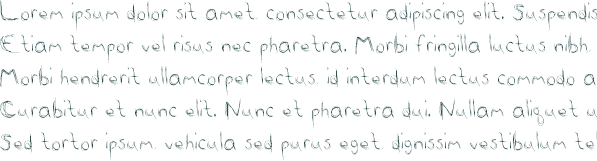 Lorem ipsum dolor sit amet, consectetur adipiscing elit. Suspendis
Etiam tempor vel risus nec pharetra. Morbi fringilla luctus nibh,
Morbi hendrerit ullamcorper lectus, id interdum lectus commodo a
Curabitur et nunc elit. Nunc et pharetra dui. Nullam aliquet u
Sed tortor ipsum, vehicula sed purus eget, dignissim vestibulum te